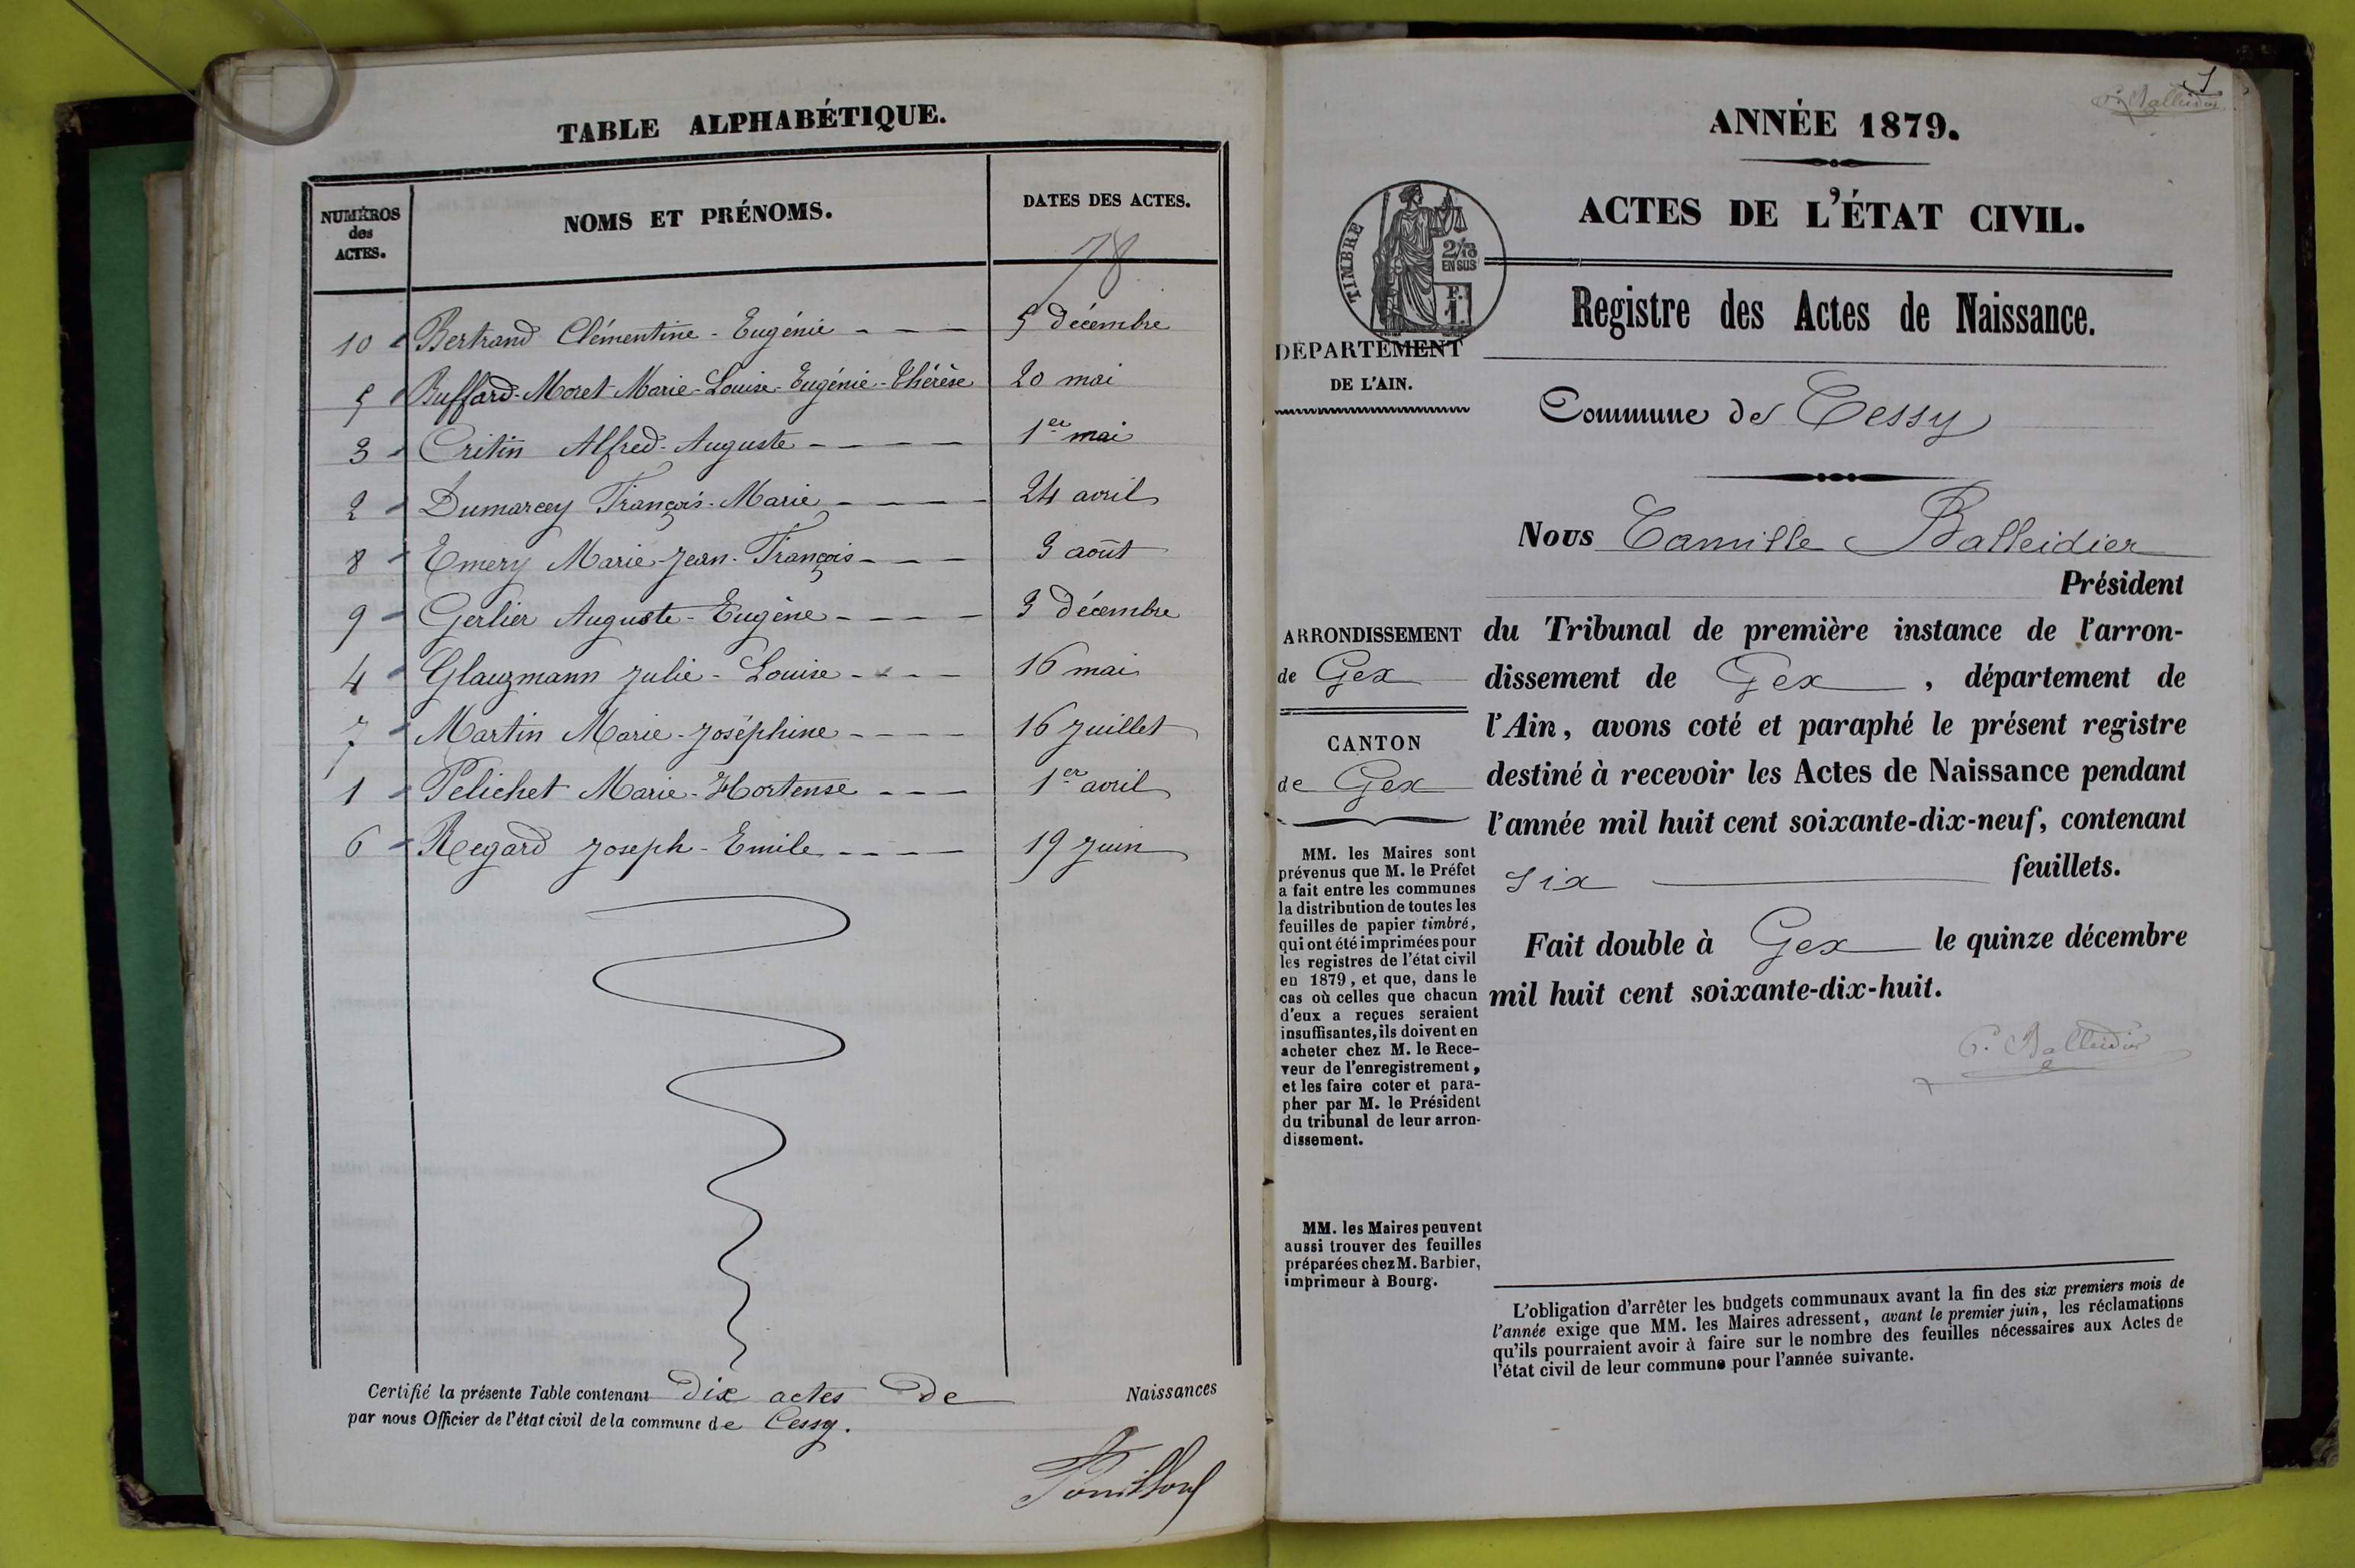 TABLE ALPHABÉTIQUE.
NUMÉROS des ACTES.
NOMS ET PRÉNOMS.
DATES DES ACTES.
78
10 Bertrand Clémentine - Eugénie - - - 5 décembre
5 Buffard-Moret Marie-Louise-Eugénie-Thérèse 20 mai
3 Critin Alfred-Auguste - - - - 1er mai
2 Dumarcey François-Marie - - - - 24 avril
8 Emery Marie-Jean-François - - - 3 août
9 Gerlier Auguste-Eugène - - - - 3 décembre
4 Glauzmann Julie-Louise - - - - 16 mai
7 Martin Marie-Joséphine - - - - 16 Juillet
1 Pelichet Marie-Hortense - - - 1er avril
6 Regard Joseph-Emile - - - - 19 Juin
Certifié la présente Table contenant dix actes de Naissances
par nous Officier de l'état civil de la commune de Cessy.
1
C. Balleidier
ANNÉE 1879.
ACTES DE L'ÉTAT CIVIL.
TIMBRE
2/10
EN SUS
F.
1.
Registre des Actes de Naissance.
DÉPARTEMENT
DE L'AIN.
Commune de Cessy
Nous Camille Balleidier
Président
ARRONDISSEMENT
de Gex
CANTON
de Gex
du Tribunal de première instance de l'arron-
dissement de Gex, département de
l'Ain, avons coté et paraphé le présent registre
destiné à recevoir les Actes de Naissance pendant
l'année mil huit cent soixante-dix-neuf, contenant
six feuillets.
Fait double à Gex le quinze décembre
mil huit cent soixante-dix-huit.
C. Balleidier
MM. les Maires sont
prévenus que M. le Préfet
a fait entre les communes
la distribution de toutes les
feuilles de papier timbré,
qui ont été imprimées pour
les registres de l'état civil
en 1879, et que, dans le
cas où celles que chacun
d'eux a reçues seraient
insuffisantes, ils doivent en
acheter chez M. le Rece-
veur de l'enregistrement,
et les faire coter et para-
pher par M. le Président
du tribunal de leur arron-
dissement.
MM. les Maires peuvent
aussi trouver des feuilles
préparées chez M. Barbier,
imprimeur à Bourg.
L'obligation d'arrêter les budgets communaux avant la fin des six premiers mois de
l'année exige que MM. les Maires adressent, avant le premier juin, les réclamations
qu'ils pourraient avoir à faire sur le nombre des feuilles nécessaires aux Actes de
l'état civil de leur commune pour l'année suivante.